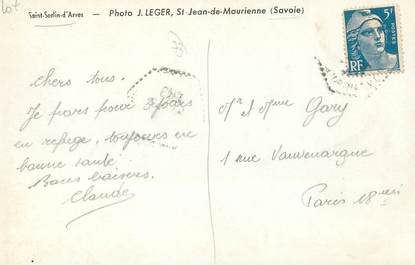 Lot
Saint-Sorlin-d'Arves — Photo J. LEGER, St-Jean-de-Maurienne (Savoie)
5F
POSTES
RF
Chers tous.
Je pars pour 3 jours
en refuge, toujours en
bonne santé.
Bons baisers.
Claude
Mr et Mme Gary
1 rue Vauvenargue
Paris 18em